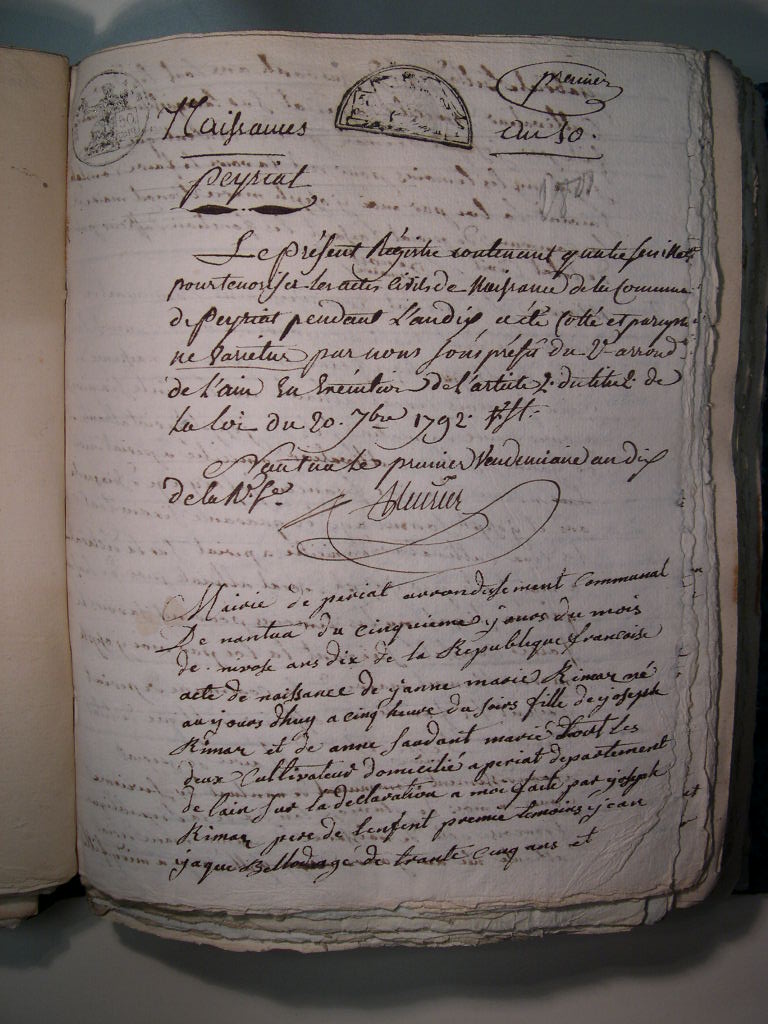 premier
Naissances an 10.
Peyriat
Le présent Régistre contenant quatre feuillets
pour tenorises les actes Civils de Naissance de la Commune
de Peyriat pendant L'an dix, a été Cotté et paraphé
ne varietur par nous sous préfet du 2e arrond.
de L'ain En Exécution de L'article 2. du titre 2. de
La loi du 20. 7bre 1792.
Nantua Le premier Vendemiaire an dix
de la
Mairie de periat arrondissement Communal
De nantua du cinquieme jours du mois
de nivose ans dix de la Republique francoise
acte de naissance de janne marie Rimaz né
au jours dhuy a cinq heure du soirs fille de joseph
Rimaz et de anne faudant marié tout les
deux Cultivateur domicilié a periat departement
de lain sur la declaration a moi faite par joseph
Rimaz pere de lenfent premie temoins jean
jaque agé de trante cinq ans et